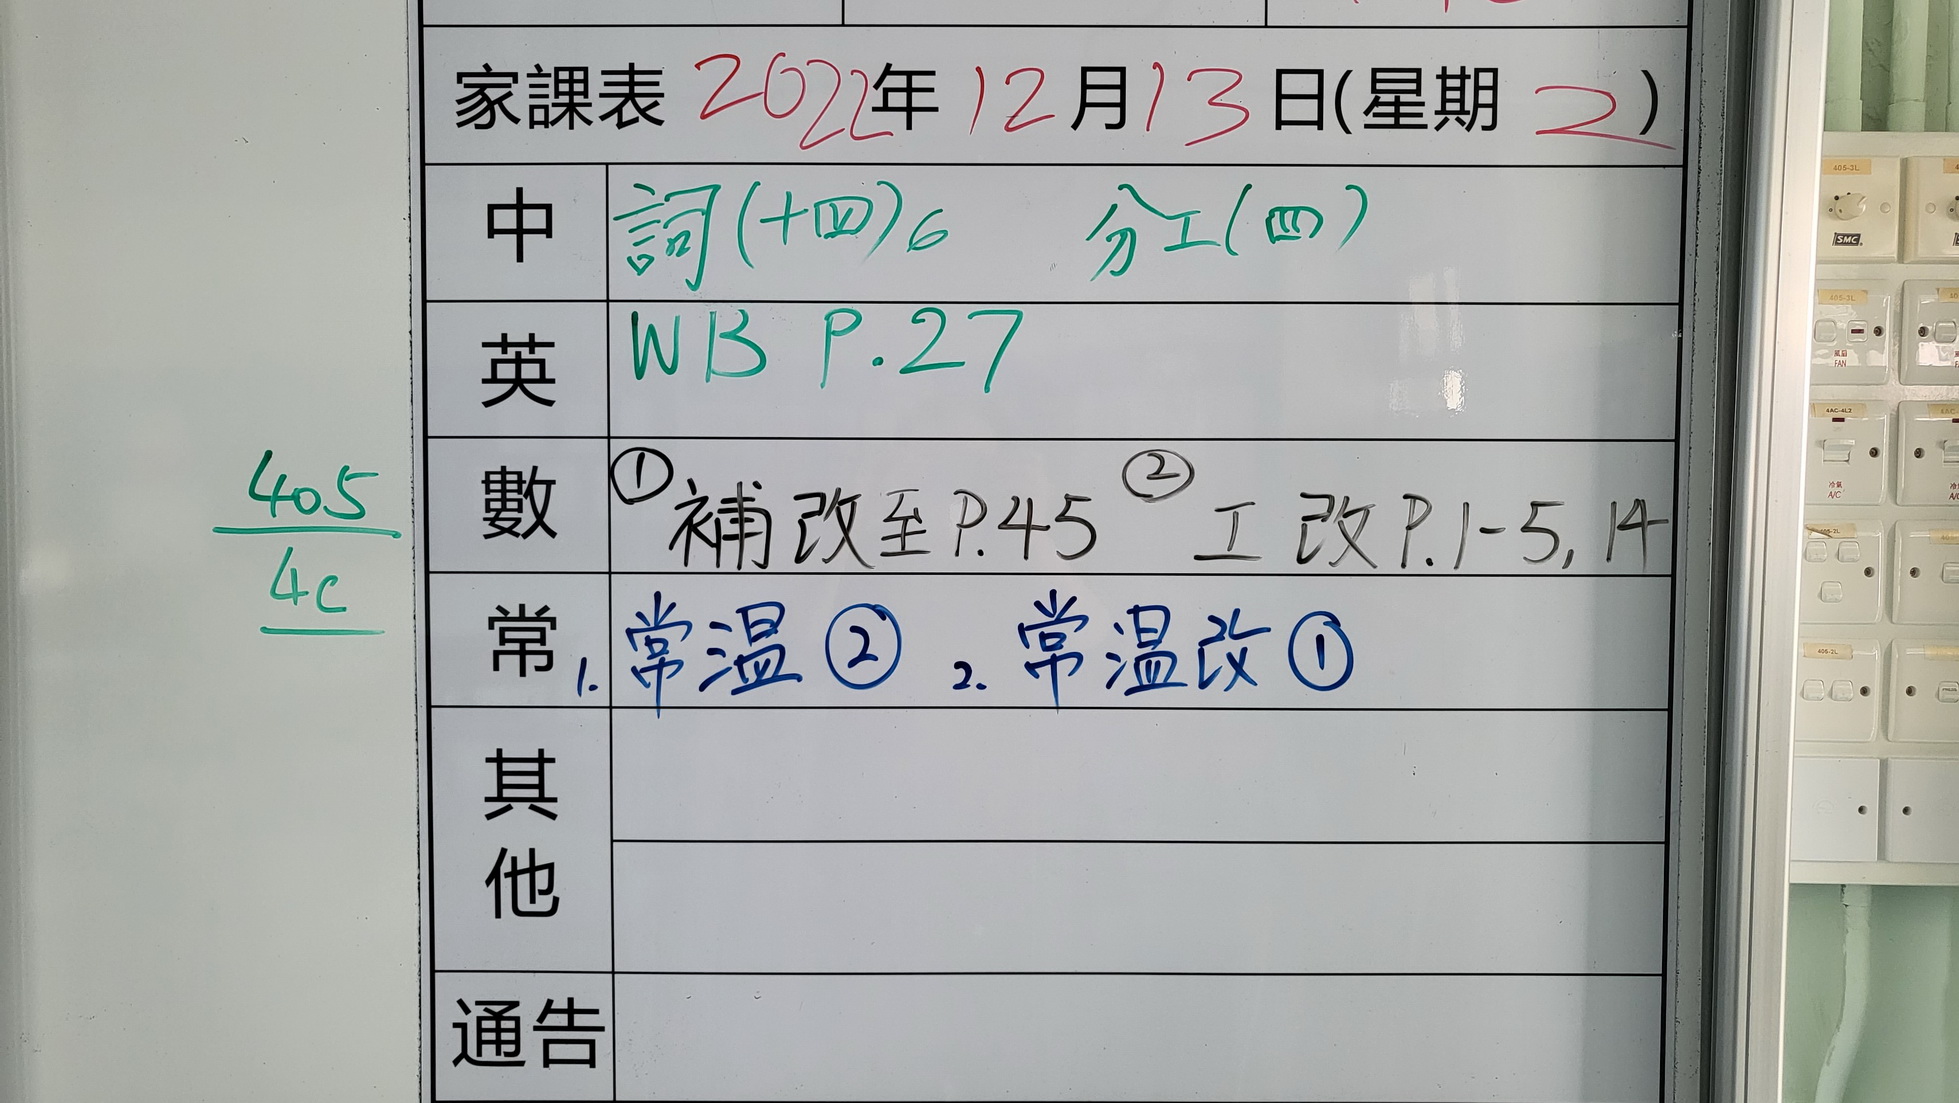 家課表 2022年 12月13日(星期 2)
中 詞(十四)6 分工(四)
英 WB P.27
數 ①補改至P.45 ②工改P.1-5, 14
405
4c
常 1. 常溫② 2. 常溫改①
其他
通告
405-3L
SMC
405-3L
風扇
FAN
4AC-4L2
冷氣
A/C
406-2L